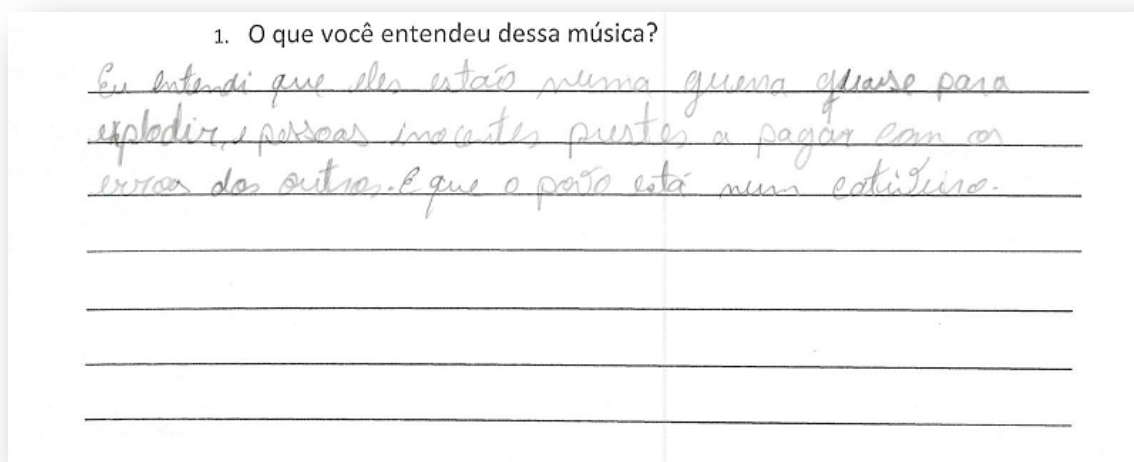 1. O que você entendeu dessa música?
Eu entendi que eles estão numa guerra quase para
explodir, e pessoas inocentes prestes a pagar com os
erros dos outros. E que o povo está num cativeiro.